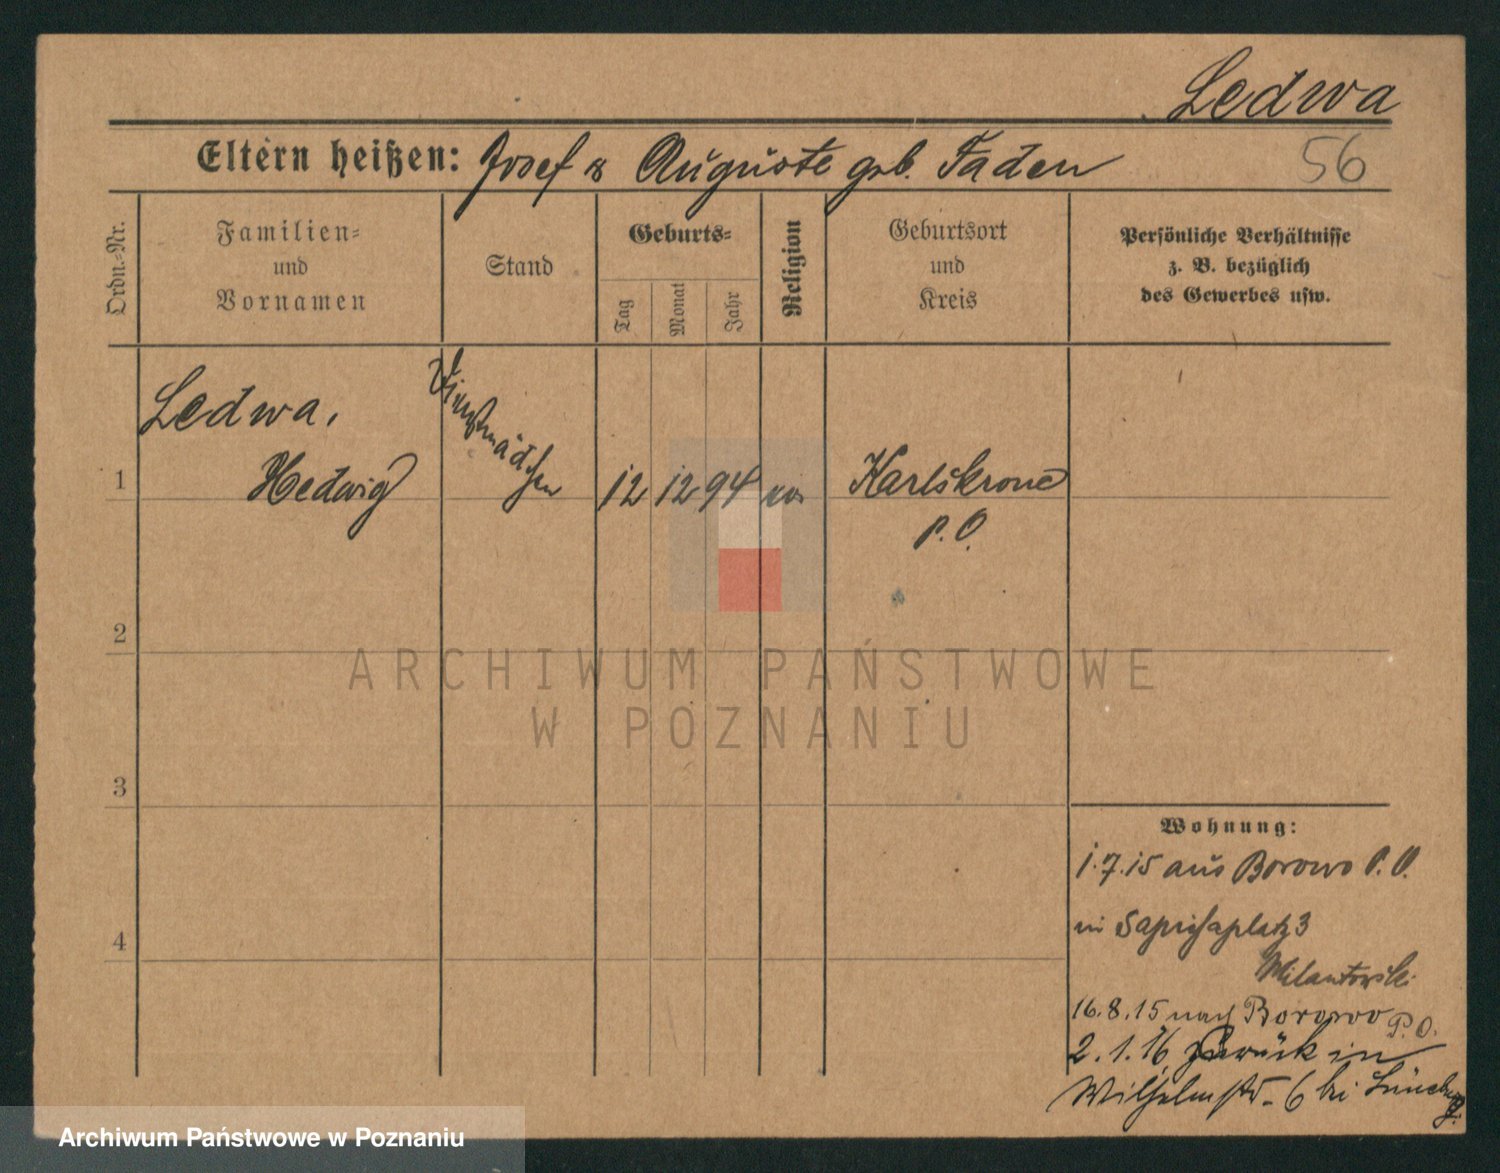 Ledwa
56
Eltern heißen: Josef & Auguste geb. Faden
Ordn.-Nr.
Familien-
und
Vornamen
Stand
Geburts-
Tag
Monat
Jahr
Religion
Geburtsort
und
Kreis
Persönliche Verhältnisse
z. B. bezüglich
des Gewerbes usw.
1
Ledwa,
Hedwig
Dienstmädchen
12
12
94
Karlskrone
P. O.
2
3
4
Wohnung:
1.7.15 aus Borowo P. O.
in Sapiehaplatz 3
16.8.15 nach Borowo P. O.
2.1.16 zurück in
Wilhelmstr. 6 bei
ARCHIWUM PAŃSTWOWE
W POZNANIU
Archiwum Państwowe w Poznaniu